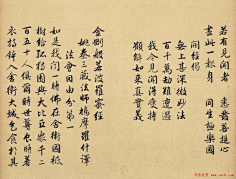 若有見聞者　悉發菩提心
盡此一報身　同生極樂國
開經偈
無上甚深微妙法
百千萬劫難遭遇
我今見聞得受持
願解如來真實義
金剛般若波羅密經
姚秦三藏法師鳩摩羅什譯
法會因由分第一
如是我聞一時佛在舍衛國祇
樹給孤獨園與大比丘眾千二
百五十人俱爾時世尊食時著
衣持鉢入舍衛大城乞食於其